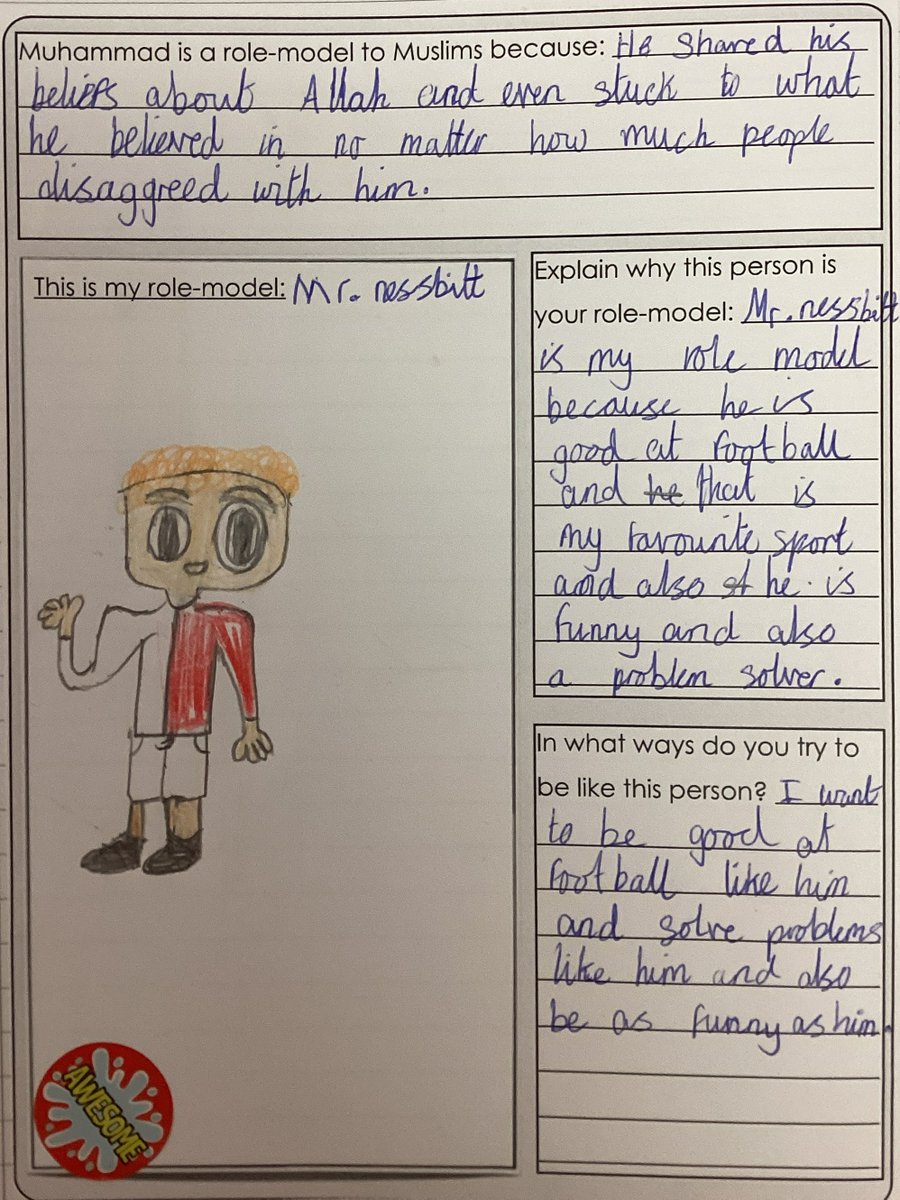 Muhammad is a role-model to Muslims because: He shared his
beliefs about Allah and even stuck to what
he believed in no matter how much people
disaggreed with him.
This is my role-model: Mr. nessbitt
Explain why this person is
your role-model: Mr. nessbitt
is my role model
because he is
good at football
and he that is
my favourite sport
and also he is
funny and also
a problem solver.
In what ways do you try to
be like this person? I want
to be good at
football like him
and solve problems
like him and also
be as funny as him.
AWESOME